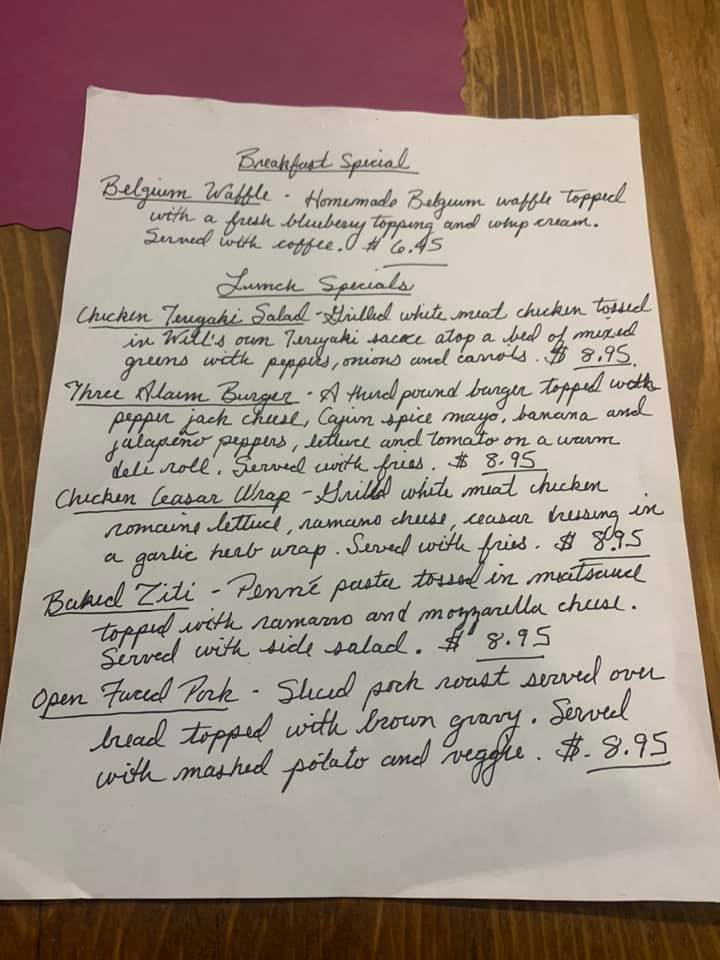 Breakfast Special
Belgium Waffle - Homemade Belgium waffle topped
with a fresh blueberry topping and whip cream.
Served with coffee. $ 6.45
Lunch Specials
Chicken Teriyaki Salad - Grilled white meat chicken tossed
in Will's own Teriyaki sauce atop a bed of mixed
greens with peppers, onions and carrots. $ 8.95
Three Alarm Burger - A third pound burger topped with
pepper jack cheese, Cajun spice mayo, banana and
jalapeño peppers, lettuce and tomato on a warm
deli roll. Served with fries. $ 8.95
Chicken Ceasar Wrap - Grilled white meat chicken
romaine lettuce, ramano cheese, ceasar dressing in
a garlic herb wrap. Served with fries. $ 8.95
Baked Ziti - Penné pasta tossed in meatsauce
topped with ramano and mozzarella cheese.
Served with side salad. $ 8.95
Open Faced Pork - Sliced pork roast served over
bread topped with brown gravy. Served
with mashed potato and veggie. $. 8.95